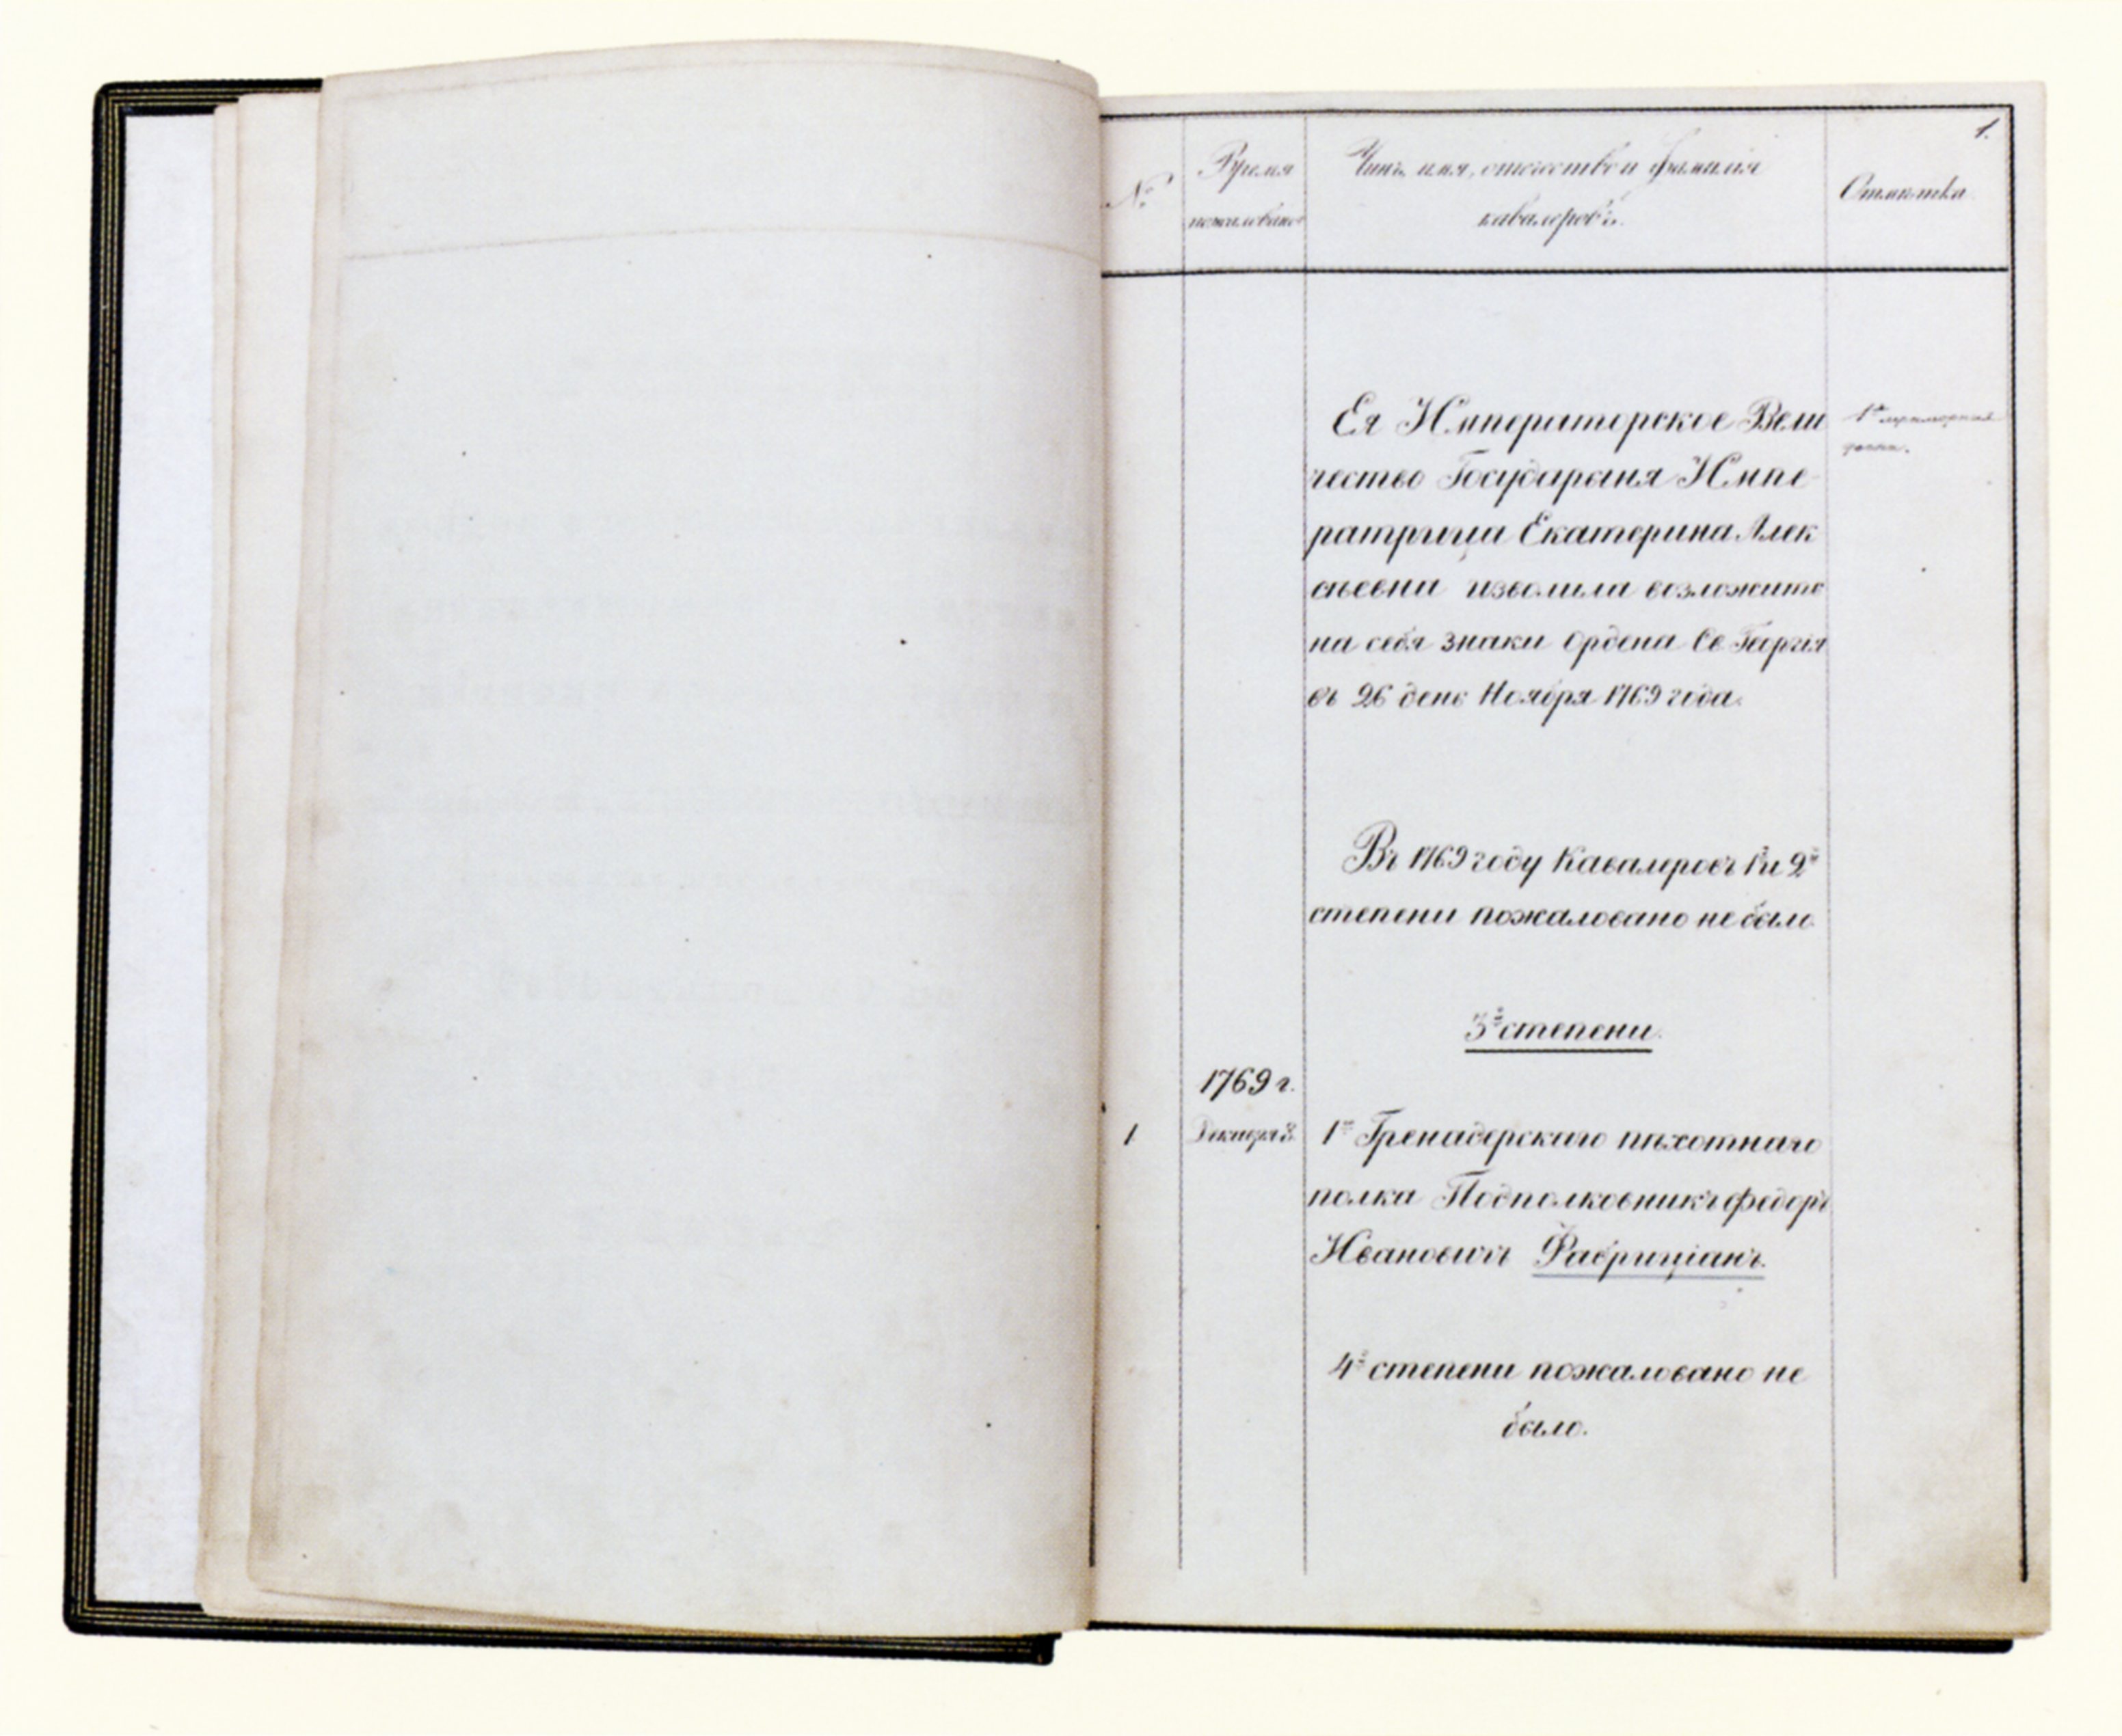 1.
№
Время
пожалованія
Чинъ, имя, отчество и фамилія
кавалеровъ.
Отмѣтка
Ея Императорское Вели
чество Государыня Импе-
ратрица Екатерина Алек
сѣевна изволила возложить
на себя знаки Ордена Св Георгія
въ 26 день Ноября 1769 года.
1я мраморная
доска.
Въ 1769 году Кавалеровъ 1й и 2й
степени пожаловано не было.
3й степени.
1769 г.
1 Декабря 8. 1го Гренадерскаго пѣхотнаго
полка Подполковникъ Федоръ
Ивановичъ Фабриціанъ.
4й степени пожаловано не
было.